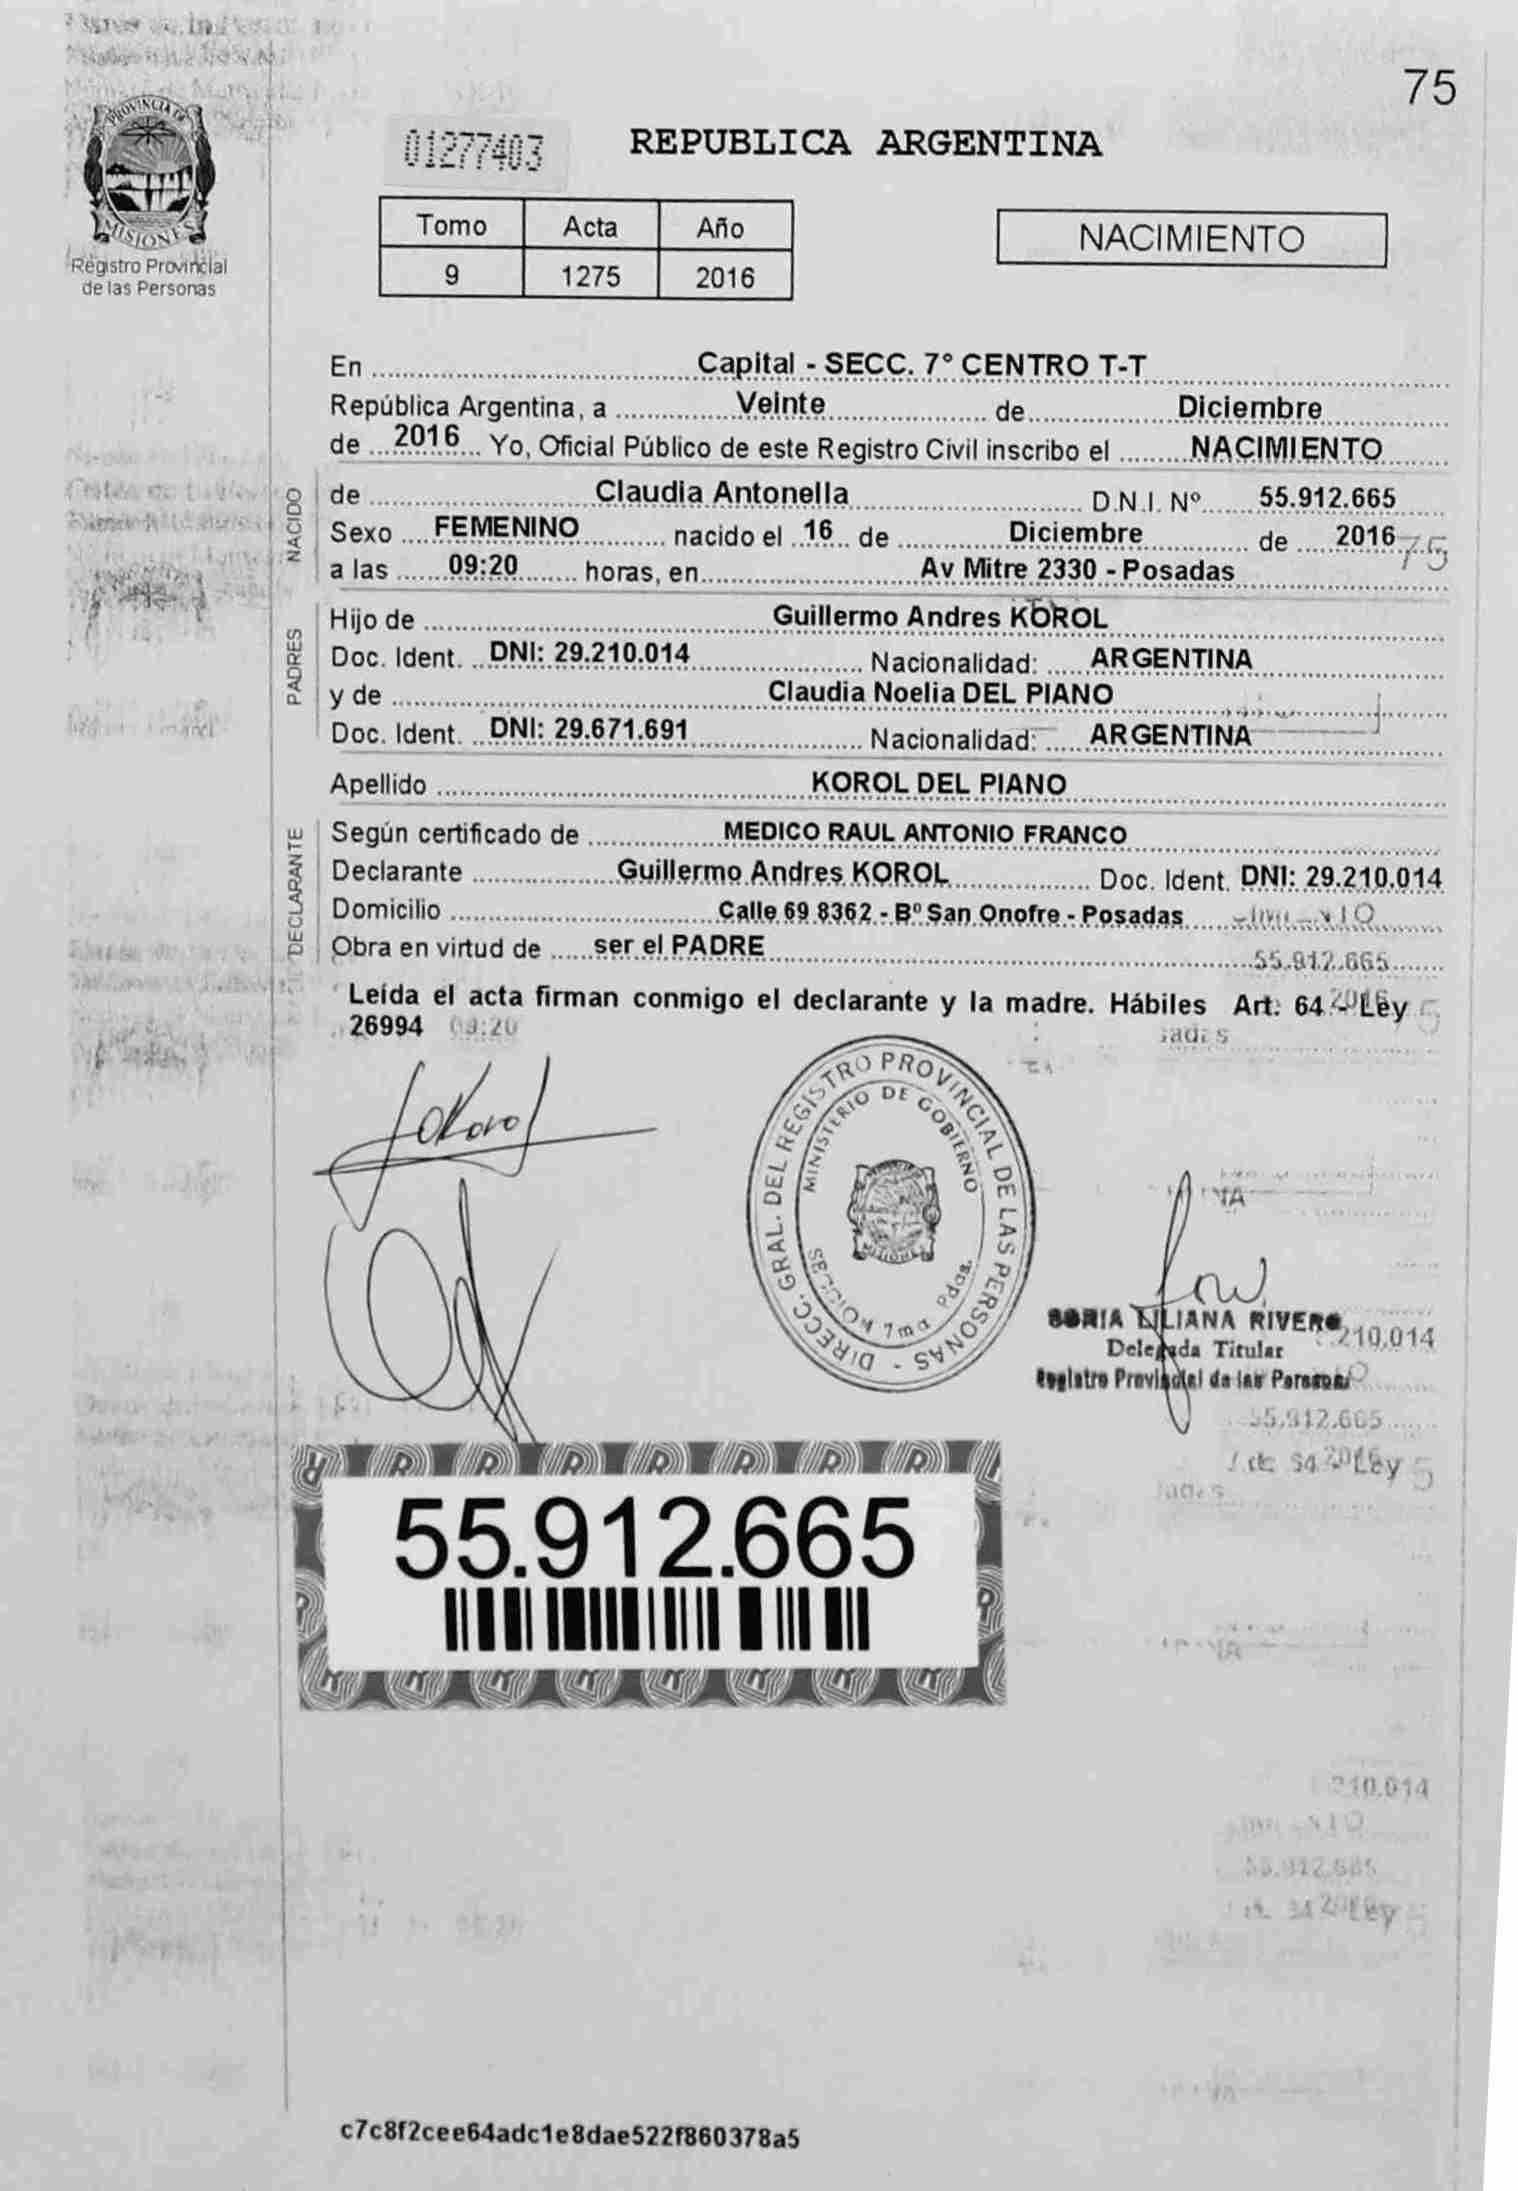 75
PROVINCIA DE
MISIONES
Registro Provincial
de las Personas
01277403
REPUBLICA ARGENTINA
Tomo Acta Año
9 1275 2016
NACIMIENTO
En Capital - SECC. 7° CENTRO T-T
República Argentina, a Veinte de Diciembre
de 2016 Yo, Oficial Público de este Registro Civil inscribo el NACIMIENTO
NACIDO
de Claudia Antonella D.N.I. Nº 55.912.665
Sexo FEMENINO nacido el 16 de Diciembre de 2016
75
a las 09:20 horas, en Av Mitre 2330 - Posadas
PADRES
Hijo de Guillermo Andres KOROL
Doc. Ident. DNI: 29.210.014 Nacionalidad: ARGENTINA
y de Claudia Noelia DEL PIANO
Doc. Ident. DNI: 29.671.691 Nacionalidad: ARGENTINA
Apellido KOROL DEL PIANO
DECLARANTE
Según certificado de MEDICO RAUL ANTONIO FRANCO
Declarante Guillermo Andres KOROL Doc. Ident. DNI: 29.210.014
Domicilio Calle 69 8362 - Bº San Onofre - Posadas
Obra en virtud de ser el PADRE
55.912.665
Leída el acta firman conmigo el declarante y la madre. Hábiles Art: 64.- Ley
26994 09:20
Korol
DIRECC. GRAL. DEL REGISTRO PROVINCIAL DE LAS PERSONAS -
MINISTERIO DE GOBIERNO
MISIONES
SECCION 7ma Pdas.
SONIA LILIANA RIVERO
210.014
Delegada Titular
Registro Provincial de las Personas
55.912.665
2016 Ley
55.912.665
210.014
55.912.665
Ley
c7c8f2cee64adc1e8dae522f860378a5